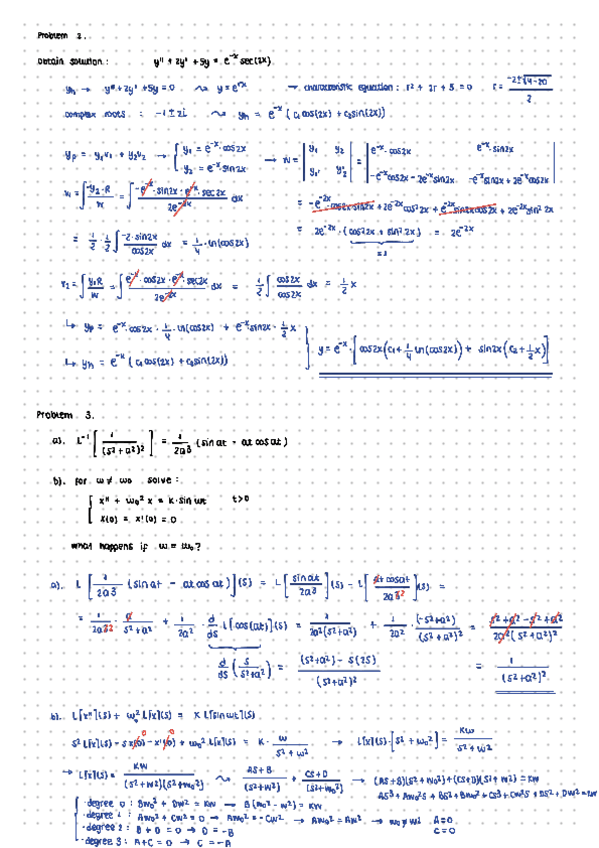 Problem 2.
Obtain solution: y'' + 2y' + 5y = e^-x sec(2x)
yh → y'' + 2y' + 5y = 0 ⤳ y = e^rx → characteristic equation: r² + 2r + 5 = 0 r = (-2 ± √(4-20)) / 2
complex roots: -1 ± 2i ⤳ yh = e^-x (c1 cos(2x) + c2 sin(2x))
yp = y1v1 + y2v2 → { y1 = e^-x · cos2x
y2 = e^-x · sin2x → W = | y1 y2 | = | e^-x · cos2x e^-x · sin2x |
| y1' y2' | | -e^-x cos2x - 2e^-x sin2x -e^-x sin2x + 2e^-x cos2x |
v1 = ∫ (-y2·R)/W = ∫ (-e^-x · sin2x · e^-x · sec2x)/(2e^-2x) dx
= -e^-2x cos2x sin2x + 2e^-2x cos²2x + e^-2x sin2x cos2x + 2e^-2x sin²2x
= 1/2 · 1/2 ∫ (-2 · sin2x)/(cos2x) dx = 1/4 · ln(cos2x)
= 2e^-2x · (cos²2x + sin²2x) = 2e^-2x
= 1
v2 = ∫ (y1R)/W = ∫ (e^-x · cos2x · e^-x · sec2x)/(2e^-2x) dx = 1/2 ∫ (cos2x)/(cos2x) dx = 1/2 x
↳ yp = e^-x · cos2x · 1/4 · ln(cos2x) + e^-x sin2x · 1/2 x
y = e^-x · [cos2x (c1 + 1/4 ln(cos2x)) + sin2x (c2 + 1/2 x)]
↳ yh = e^-x (c1 cos(2x) + c2 sin(2x))
Problem 3.
a). L^-1 [1/(s² + a²)²] = 1/(2a³) · (sin at - at cos at)
b). for w ≠ w0 solve:
{ x'' + w0² x = K · sin wt t>0
x(0) = x'(0) = 0
What happens if w = w0?
a). L [1/(2a³) (sin at - at cos at)] (s) = L [sin at/(2a³)] (s) - L [at cos at/(2a³²)] (s) =
= 1/(2a³²) · a/(s² + a²) + 1/(2a²) · d/ds L[cos(at)](s) = 1/(2a²(s² + a²)) + 1/(2a²) · (-s² + a²)/(s² + a²)² = (s² + a² - s² + a²)/(2a²(s² + a²)²)
d/ds (s/(s² + a²)) = ((s² + a²) - s(2s))/(s² + a²)² = 1/(s² + a²)²
b). L[x''](s) + w0² L[x](s) = K L[sin wt](s)
s² L[x](s) - s x(0) - x'(0) + w0² L[x](s) = K · w/(s² + w²) → L[x](s) · [s² + w0²] = Kw/(s² + w²)
→ L[x](s) = Kw/((s² + w²)(s² + w0²)) ⤳ (As + B)/(s² + w²) + (Cs + D)/(s² + w0²) → (As + B)(s² + w0²) + (Cs + D)(s² + w²) = Kw
As³ + Aw0²s + Bs² + Bw0² + Cs³ + Cw²s + Ds² + Dw² = Kw
degree 0: Bw0² + Dw² = Kw → B(w0² - w²) = Kw
degree 1: Aw0² + Cw² = 0 → Aw0² = -Cw² → Aw0² = Aw² → w0 ≠ w A = 0
degree 2: B + D = 0 → D = -B C = 0
degree 3: A + C = 0 → C = -A